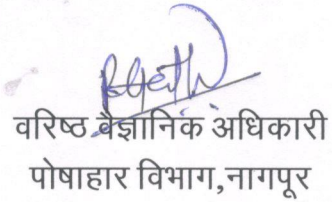 वरिष्ठ वैज्ञानिक अधिकारी
पोषाहार विभाग,नागपूर